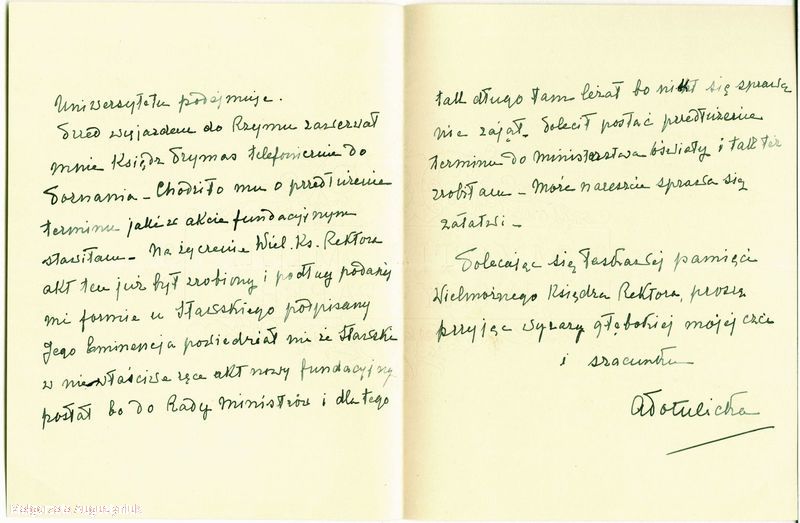 Uniwersytetu podejmuje.
Przed wyjazdem do Rzymu zawezwał
mnie Ksiądz Prymas telefonicznie do
Poznania – Chodziło mu o przedłużenie
terminu jaki w akcie fundacyjnym
stawiłam – Na życzenie Wiel. Ks. Rektora
akt ten już był zrobiony i podług podanej
mi formie u Sławskiego podpisany
Jego Eminencja powiedział mi że Sławski
w niewłaściwe ręce akt nowy fundacyjny
posłał bo do Rady Ministrów i dlatego
tak długo tam leżał bo nikt się sprawą
nie zajął – Polecił posłać przedłużenie
terminu do Ministerstwa Oświaty i tak też
zrobiłam – Może nareszcie sprawa się
załatwi –
Polecając się łaskawej pamięci
Wielmożnego Księdza Rektora, proszę
przyjąc wyrazy głębokiej mojej czci
i szacunku
APotulicka